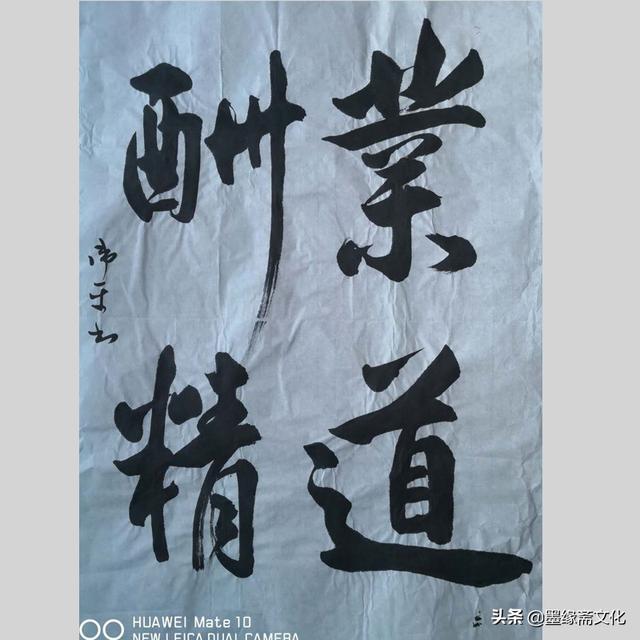 業道
酬精
平书
HUAWEI Mate 10
NEW LEICA DUAL CAMERA
头条 @墨缘斋文化